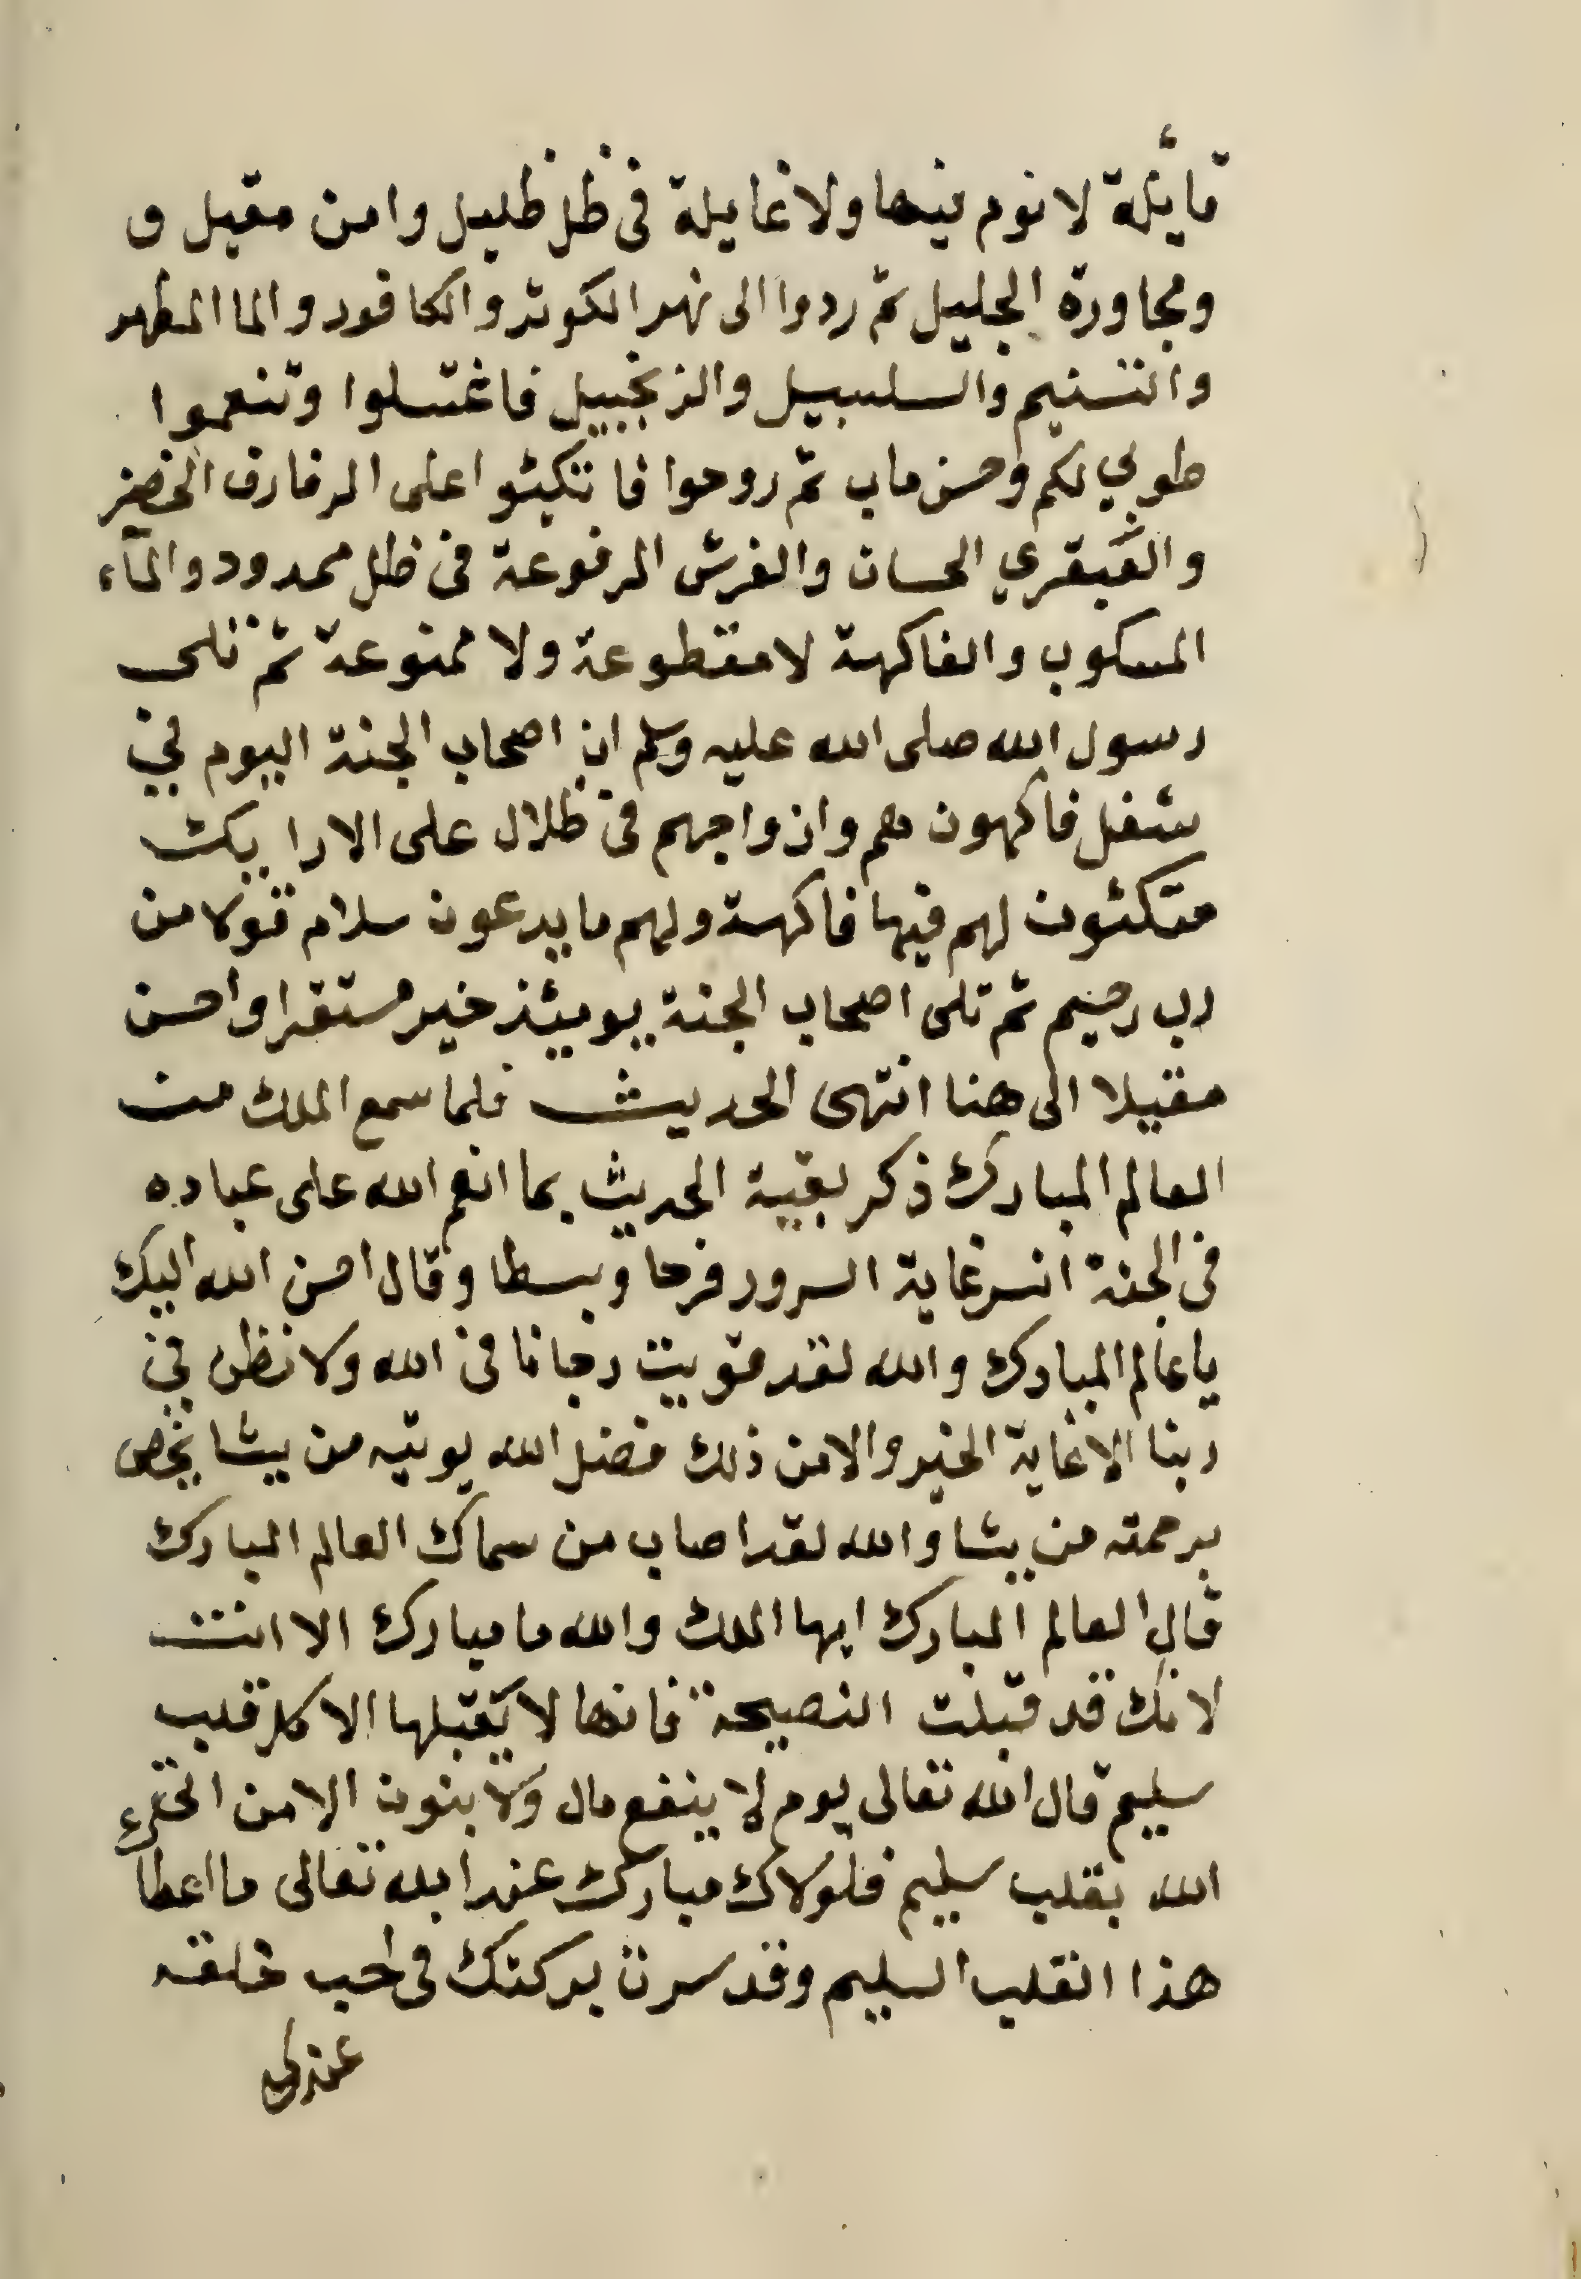 قايلة لا نوم فيها ولا غايلة فى ظل ظليل وامن مقيل و
ومجاورة الجليل ثم ردوا الى نهر الكوثر والكافور والما المطهر
والتسنيم والسلسبيل والزنجبيل فاغتسلوا وتنعموا
طوبي لكم وحسن ماب ثم روحوا فاتكئوا على الرفارف الخضر
والعبقري الحسان والفرش المرفوعة فى ظل ممدود والمآء
المسكوب والفاكهة لا مقطوعة ولا ممنوعة ثم تلى
رسول الله صلى الله عليه وسلم ان اصحاب الجنة اليوم في
شغل فاكهون هم وازواجهم فى ظلال على الارايك
متكئون لهم فيها فاكهة ولهم ما يدعون سلام قولا من
رب رحيم ثم تلى اصحاب الجنة يوميئذ خير مستقرا واحسن
مقيلا الى هنا انتهى الحديث فلما سمع الملك من
العالم المبارك ذكر بقية الحديث بما انعم الله على عباده
فى الجنة انسر غاية السرور فرحا وبسطا وقال احسن الله اليك
يا عالم المبارك والله لقد قويت رجانا فى الله ولا نظن في
ربنا الا غاية الخير والامن ذلك فضل الله يوتيه من يشا يخص
برحمته من يشا والله لقد اصاب من سماك العالم المبارك
قال العالم المبارك ايها الملك والله ما مبارك الا انت
لانك قد قبلت النصيحة فانها لا يقبلها الا كل قلب
سليم قال الله تعالى يوم لا ينفع مال ولا بنون الا من اتى
الله بقلب سليم فلولاك مبارك عند الله تعالى ما اعطا
هذا القلب السليم وقد سرت بركتك فى احب خلقه